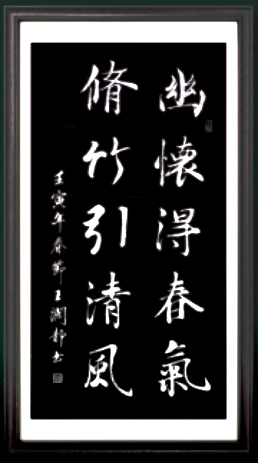 幽懷得春氣
脩竹引清風
壬寅年春節王闊静书